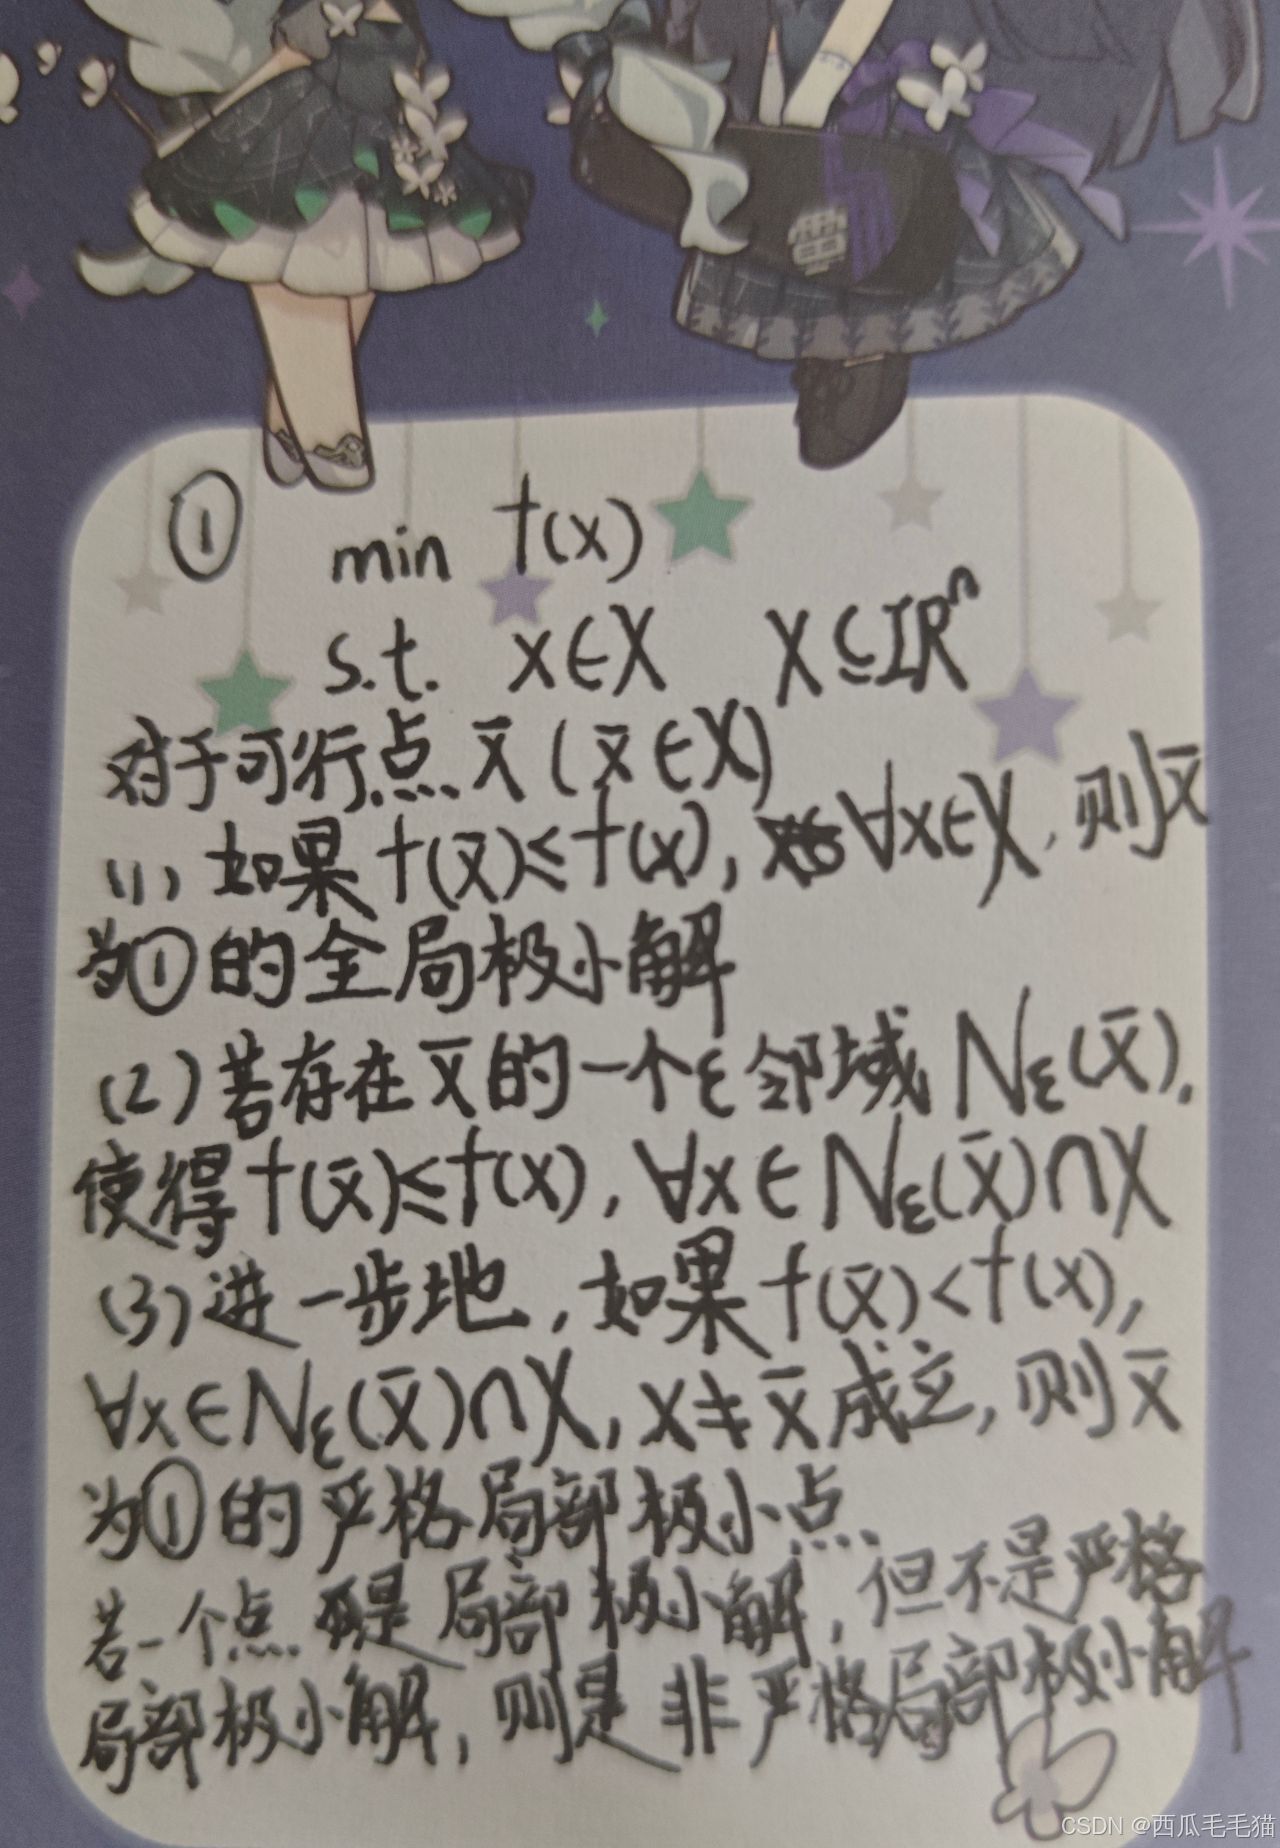 ① min f(x)
s.t. x∈X X⊆ℝⁿ
对于可行点 x̄ (x̄∈X)
(1) 如果 f(x̄)≤f(x), ∀x∈X, 则x̄
为①的全局极小解
(2) 若存在x̄的一个ε邻域 Nε(x̄),
使得f(x̄)≤f(x), ∀x∈Nε(x̄)∩X
(3) 进一步地, 如果f(x̄)<f(x),
∀x∈Nε(x̄)∩X, x≠x̄成立, 则x̄
为①的严格局部极小点
若一个点是局部极小解, 但不是严格
局部极小解, 则是非严格局部极小解
CSDN @西瓜毛毛猫